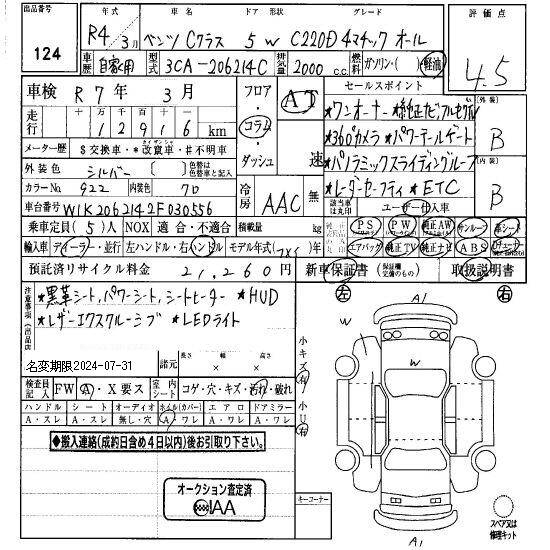 出品番号
124
年式 車名 ドア 形状 グレード
R4年 3月 ベンツ Cクラス 5 W C220D 4マチック オール
評価点
4.5
車歴 自家用 型式 3CA-206214C 排気量 2000 c.c. 燃料 ガソリン・( )・軽油
車検 R7年 3月
フロア・コラム・ダッシュ
AT
速
セールスポイント
★ワンオーナー ★純正ナビフルセグTV
★360°カメラ ★パワーテールゲート
★パノラミックスライディングルーフ
★レーダーセーフティ ★ETC
外装
B
内装
B
走行 十万 千 百 十 一
12916 km
メーター歴 $交換車・*改ざん車・#不明車
外装色 シルバー ( ) 色替は色替車と記入
カラーNo. 922 内装色 クロ
冷房 AAC 無
該当車は丸印 ユーザー・仕入車
車台番号 W1K2062142F030556
乗車定員 (5)人 NOX 適合・不適合 積載量 kg
純正品 PS PW 純正AW サンルーフ 革シート
輸入車 ディーラー・並行 左ハンドル・右ハンドル モデル年式( )年
エアバッグ 純正TV 純正ナビ ABS
預託済リサイクル料金 21,260円
新車保証書 (保証継 交換のもの) 取扱説明書
注意事項(出品店
★黒革シート,パワーシート,シートヒーター ★HUD
★レザーエクスクルーシブ ★LEDライト
左 右
A1
W
W
小キズ有
小U有
名変期限2024-07-31
諸元 長さ 幅 高さ
× ×
検査員記入 FW・A・X要ス 室内シート コゲ・穴・キズ・汚れ・破れ
ハンドル シート オーディオ ホイル(カバー) エアロ ドアミラー
A・スレ A・スレ 無し・穴 A・ワレ A・ワレ A・ワレ
◆搬入連絡(成約日含め4日以内)後お引取り下さい。
オークション査定済
IAA
キーコーナー
A1
スペアタイヤ又は修理キット